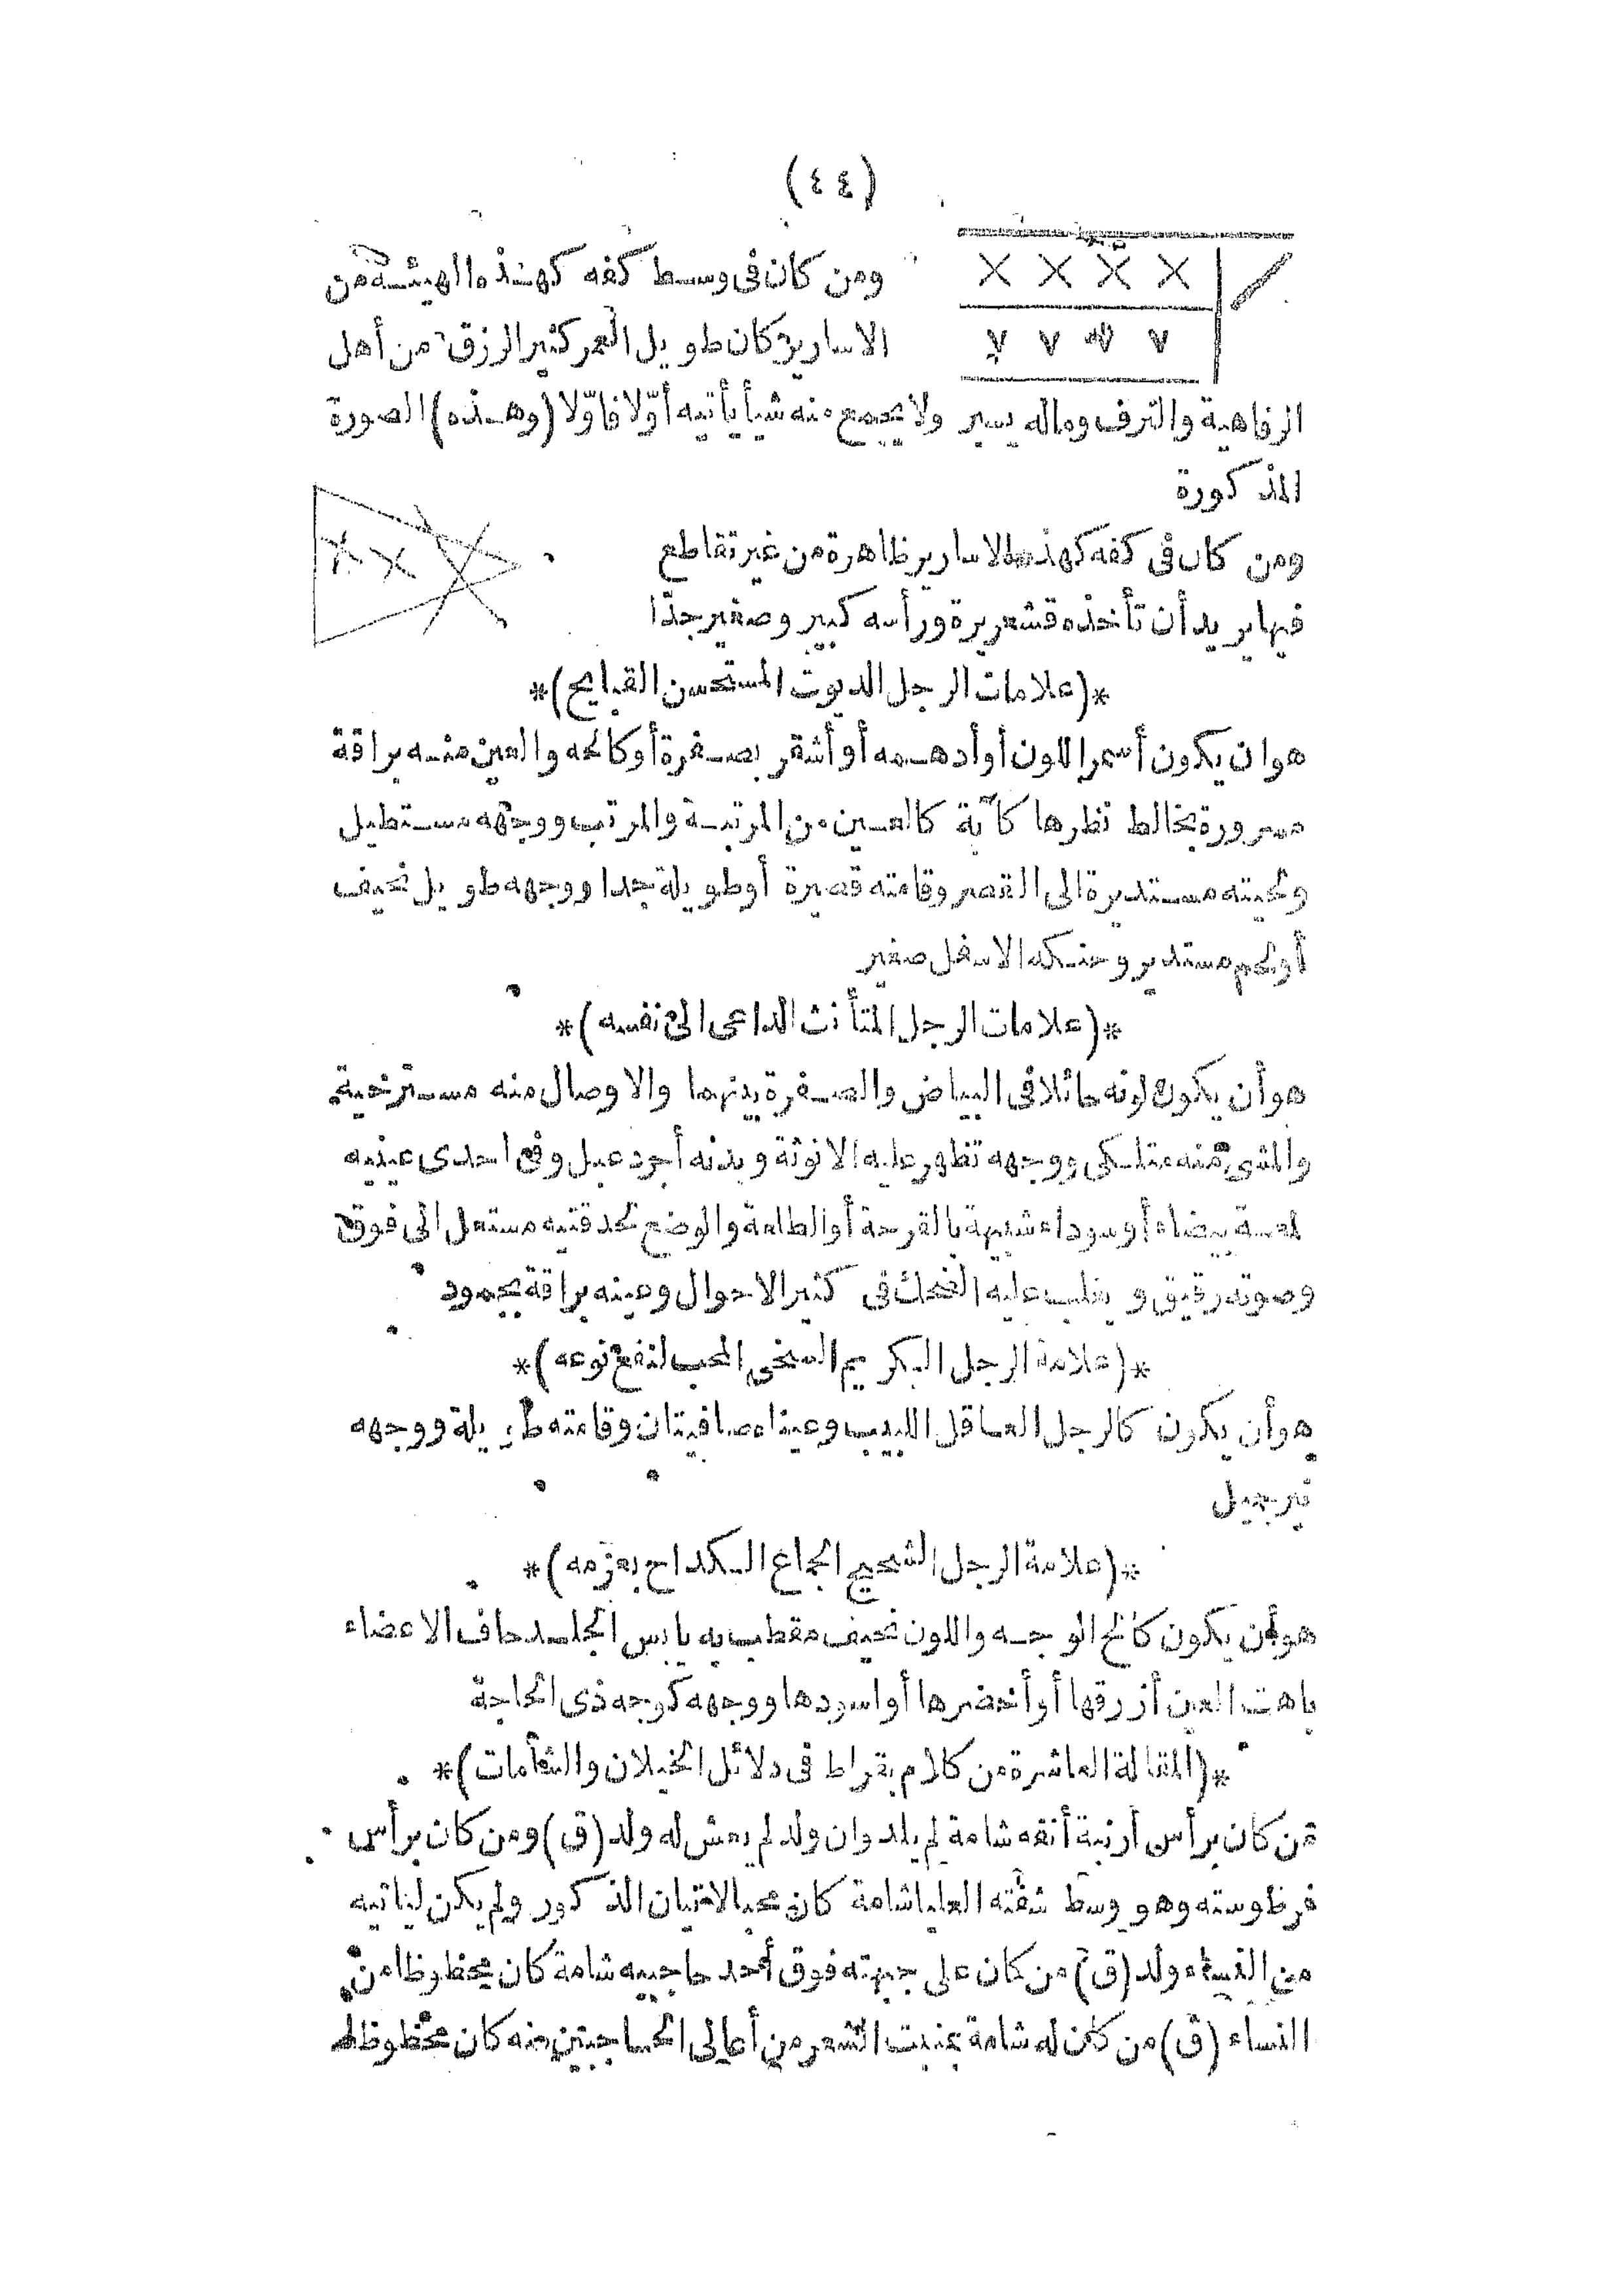 (٤٤)
ومن كان فى وسط كفه كهذه الهيئة من
× × × ×
٧ ٧ ٧ ٧
الاسارير كان طويل العمر كثير الرزق من أهل
الرفاهية والترف وماله يسير ولا يجمع منه شيأ يأتيه أوّلا فاوّلا (وهذه) الصورة
المذكورة
ومن كان فى كفه كهذه الاسارير ظاهرة من غير تقاطع
فيها يريد أن تأخذه قشعريرة ورأسه كبير وصغير جدّا
*(علامات الرجل الديوث المستحسن القبايح)*
هو ان يكون أسمر اللون أو أدهمه أو أشقر بصفرة أو كالحه والعين منه براقة
مسرورة يخالط نظرها كآبة كالعين من المرتبة والمرتب ووجهه مستطيل
ولحيته مستديرة الى القصر وقامته قصيرة أو طويلة جدا ووجهه طويل نحيف
أو لحم مستدير وحنكه الاسفل صغير
*(علامات الرجل المتأنث الداعى الى نفسه)*
هو أن يكون لونه حائلا فى البياض والصفرة بينهما والاوصال منه مسترخية
والمشى منه متلكى ووجهه تظهر عليه الانوثة وبدنه أجرد عبل وفى احدى عينيه
لمعة بيضاء أو سوداء شبيهة بالقرحة أو الطلعة والوضع لحدقتيه مستعل الى فوق
وصوته رقيق ويغلب عليه الضحك فى كثير الاحوال وعينه براقة بجمود
*(علامة الرجل الكريم السخى المحب لنفع نوعه)*
هو أن يكون كالرجل العاقل اللبيب وعيناه صافيتان وقامته طويلة ووجهه
نير جميل
*(علامة الرجل الشحيح الجماع الكداح بعزمه)*
هو أن يكون كالح الوجه واللون نحيف مقطب به يابس الجلد جاف الاعضاء
باهت العين أزرقها أو أخضرها أو اسودها ووجهه كوجه ذى الحاجة
*(المقالة العاشرة من كلام بقراط فى دلائل الخيلان والشامات)*
من كان برأس أرنبة أنفه شامة لم يلد وان ولد لم يعش له ولد (ق) ومن كان برأس
فرظوسته وهو وسط شفته العليا شامة كان محبا لاتيان الذكور ولم يكن ليأتيه
من النساء ولد (ق) من كان على جبهته فوق أحد حاجبيه شامة كان محظوظا من
النساء (ق) من كان له شامة بمنبت الشعر من أعالى الحاجبين منه كان محظوظا